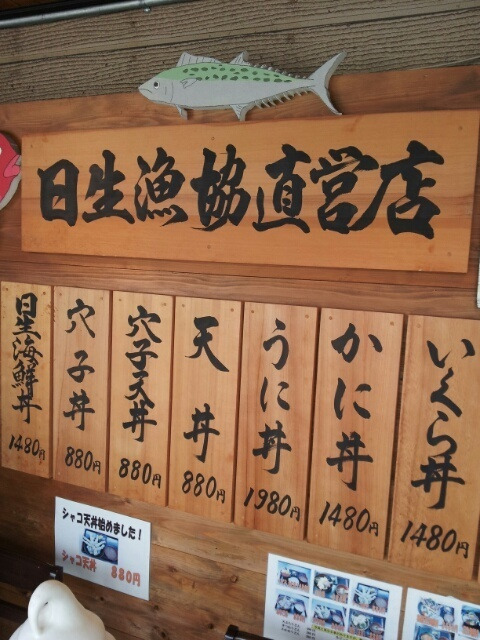 日生漁協直営店
いくら丼
1480円
かに丼
1480円
うに丼
1980円
天丼
880円
穴子天丼
880円
穴子丼
880円
日生海鮮丼
1480円
シャコ天丼始めました!
シャコ天丼 880円